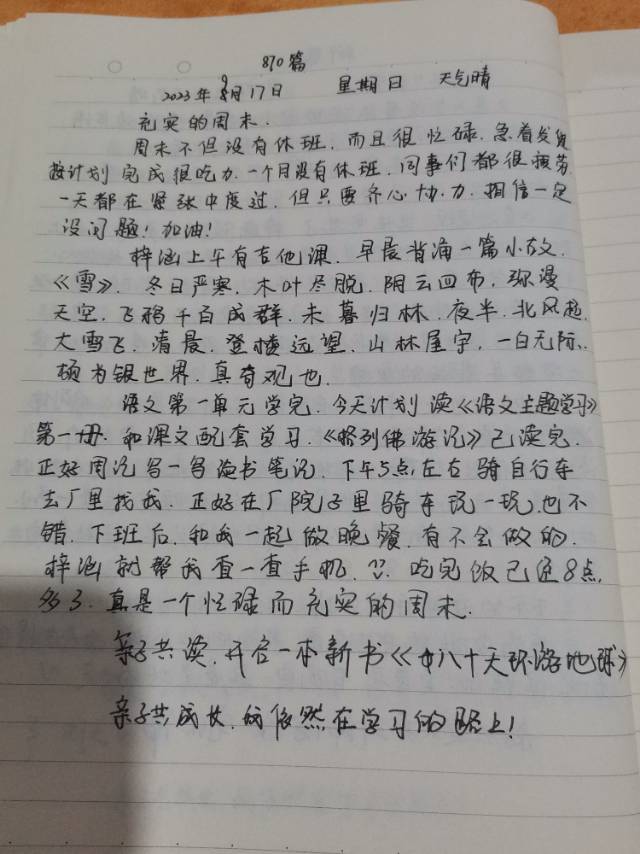 870篇
2023年9月17日 星期日 天气晴
充实的周末.
周末不但没有休班,而且很忙碌.急着发货
按计划完成很吃力.一个月没有休班.同事们都很疲劳
一天都在紧张中度过.但只要齐心协力.相信一定
没问题!加油!
梓涵上午有吉他课.早晨背诵一篇小古文.
《雪》.冬日严寒.木叶尽脱.阴云四布,弥漫
天空.飞鸦千百成群.未暮归林.夜半.北风起,
大雪飞.清晨.登楼远望.山林屋宇,一白无际.
顿为银世界.真奇观也.
语文第一单元学完.今天计划读《语文主题学习》
第一册.和课文配套学习.《格列佛游记》已读完.
正好周记写一写读书笔记.下午5点左右骑自行车
去厂里找我.正好在厂院子里骑车玩一玩也不
错.下班后.和我一起做晚餐.有不会做的.
梓涵就帮我查一查手机.??.吃完饭已近8点
多了.真是一个忙碌而充实的周末.
亲子共读.开启一本新书《八十天环游地球》
亲子共成长.依然在学习的路上!